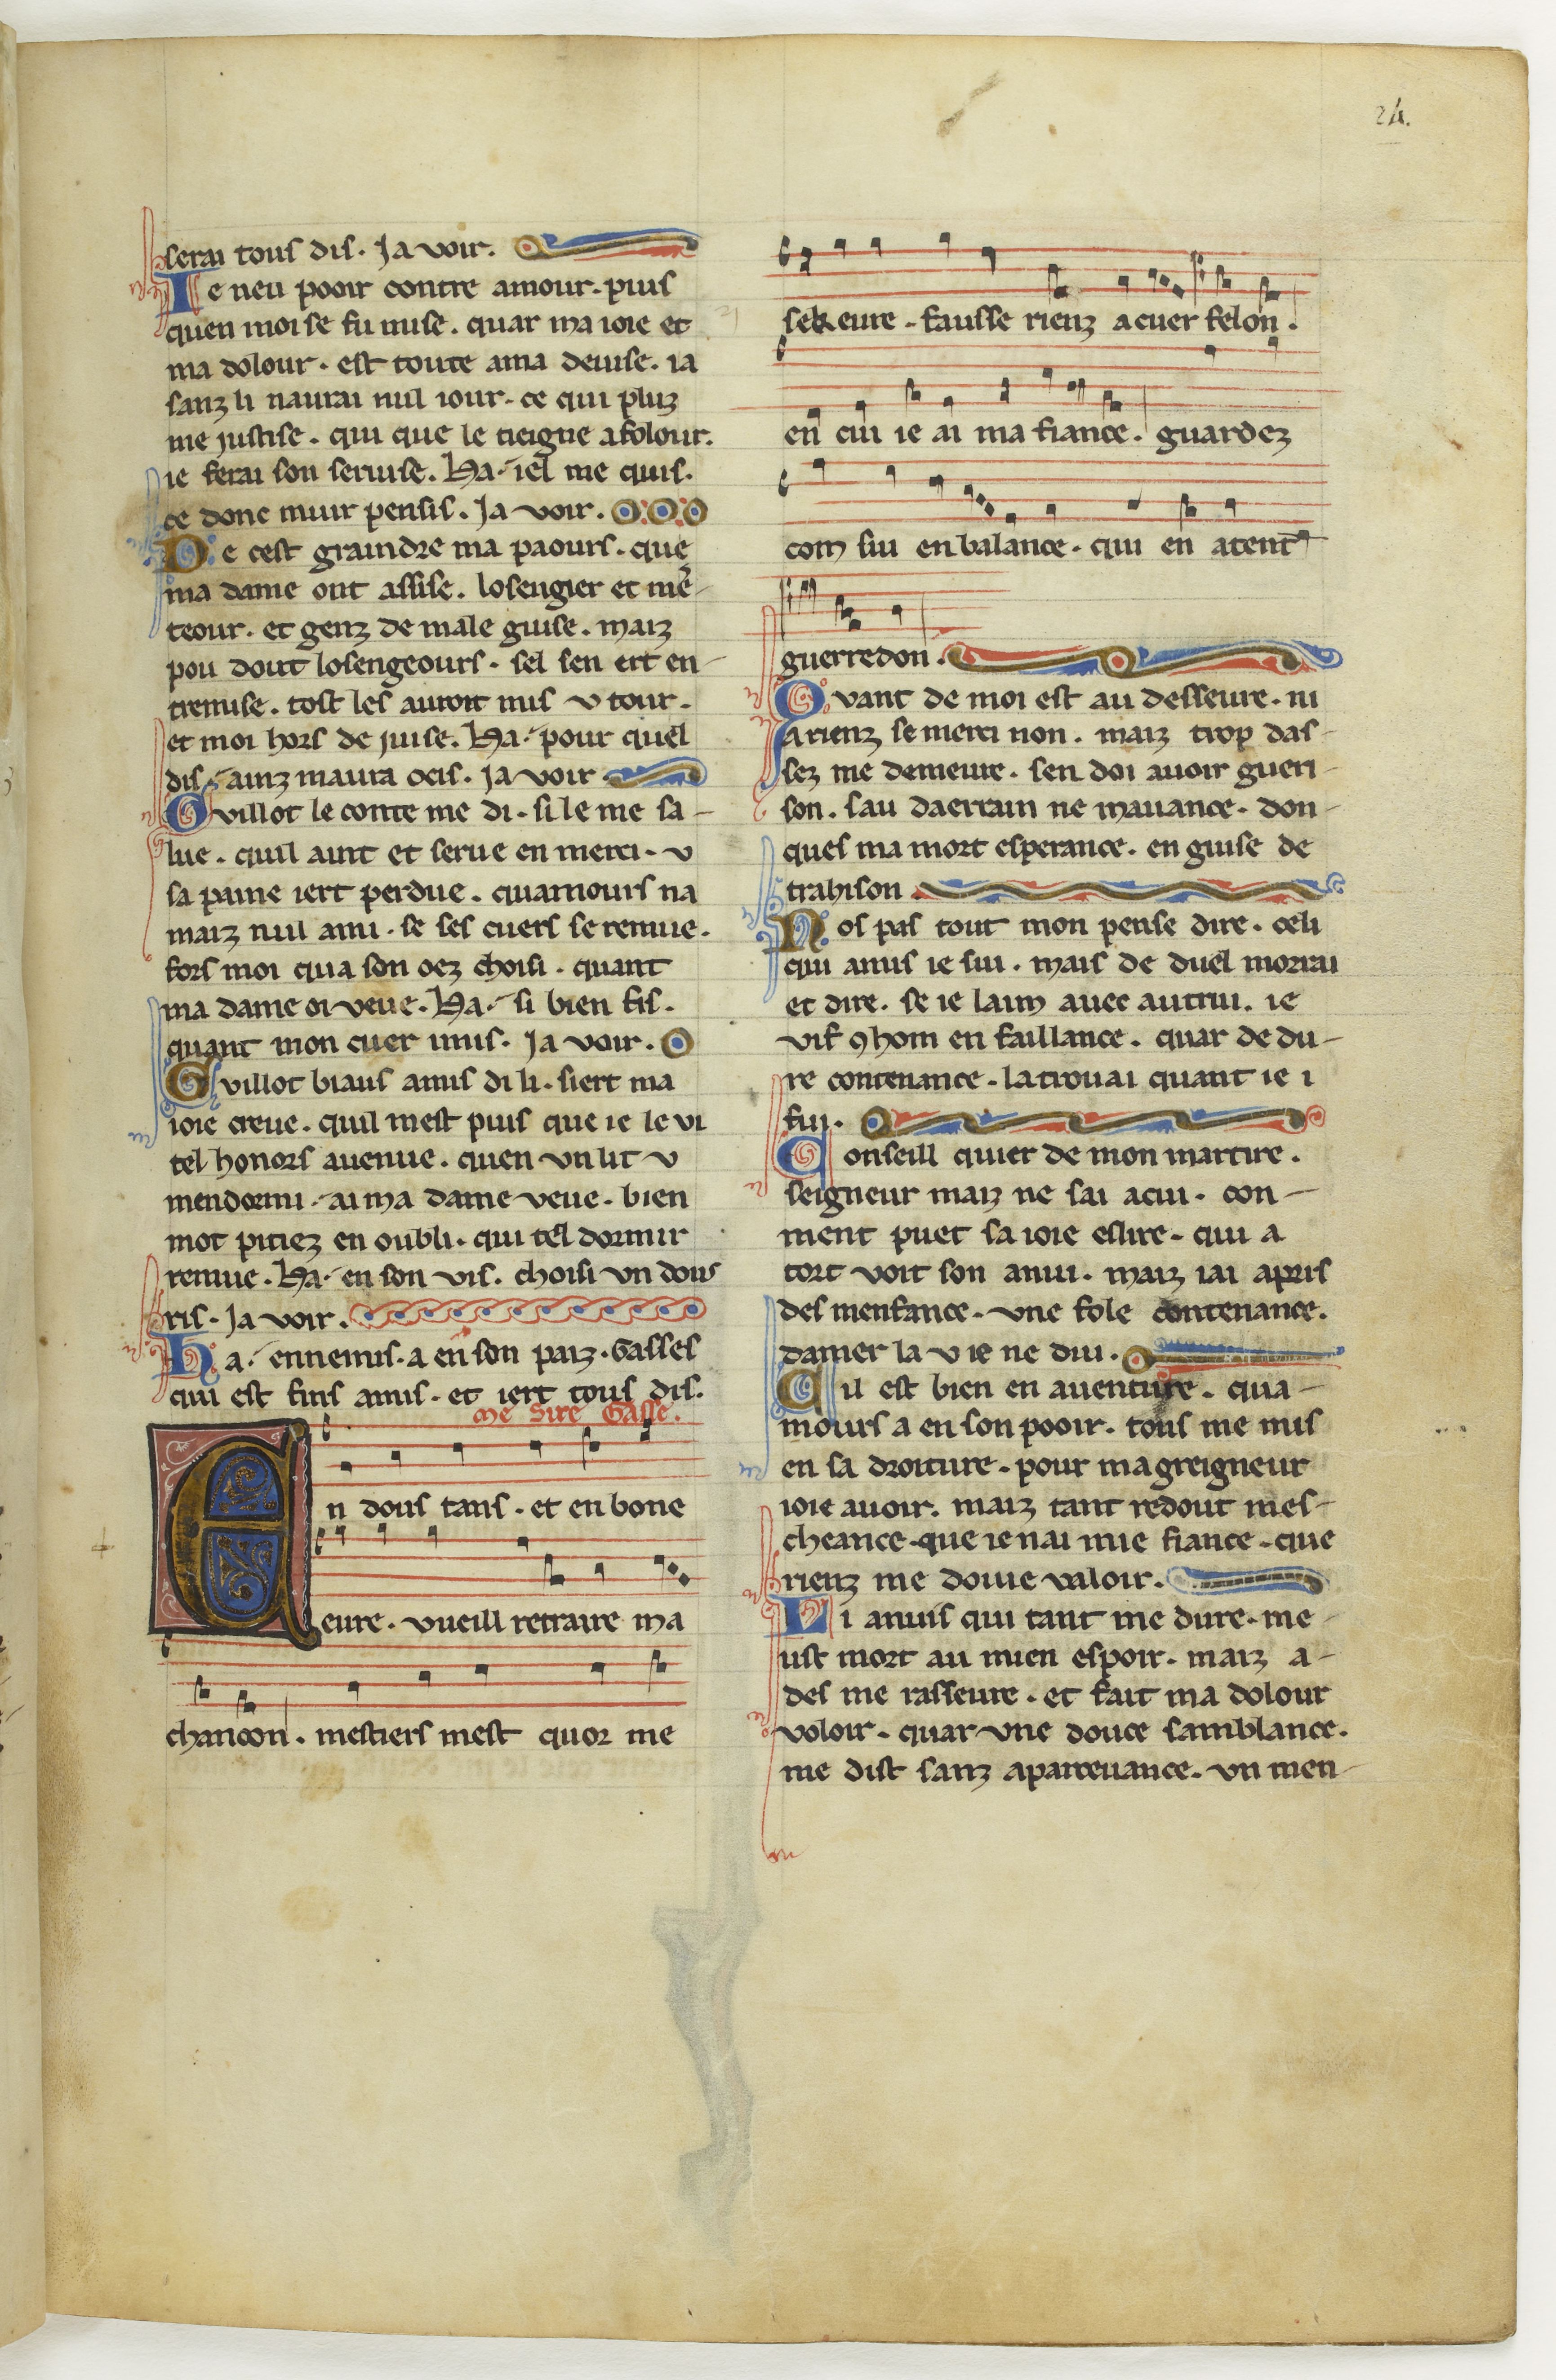 24.
serai tous dis. Ja voir.
Ie neu pooir contre amour. puis
quen moi se fu mise. quar ma ioie et
ma dolour. est toute ama deuise. ia
sanz li naurai nul iour. ce qui pluz
me justise. qui que le tieigne afolour.
ie ferai son seruise. Ha. iel me quis.
ce dont muir pensis. Ja voir.
De cest graindre ma paours. que
ma dame ont assise. losengier et mē
teour. et genz de male guise. maiz
pou dout losengeours. sel sen ert en
tremise. tost les auroit mis v tour.
et moi hors de juise. Ha. pour quel
dis. ainz maura ocis. Ja voir
Guillot le conte me di. si le me sa
lue. quil aint et serue en merci. v
sa paine iert perdue. quamours na
maiz nul ami. se ses cuers se remue.
fors moi qua son oez choisi. quant
ma dame oi veue. Ha. si bien fis.
quant mon cuer imis. Ja voir.
Guillot biaus amis di li. siert ma
ioie creue. quil mest puis que ie le vi
tel honors auenue. quen vn lit v
mendormi. ai ma dame veue. bien
mot pitiez en oubli. qui tel dormir
remue. Ha. en son vis. choisi vn dous
ris. Ja voir.
Ha. ennemis. a en son paiz. Gasses
qui est fins amis. et iert tous dis.
me Sire Gasse.
En dous tans. et en bone
eure. vueill retraire ma
chancon. mestiers mest quor me
sekeure. fausse rienz a cuer felon.
en cui ie ai ma fiance. guardez
com sui en balance. qui en atent
guerredon.
Quant de moi est au desseure. ni
a rienz se merci non. maiz trop das
sez me demeure. sen doi auoir gueri
son. sau daerrain ne mauance. don
ques ma mort esperance. en guise de
trahison
Nos pas tout mon pense dire. celi
qui amis ie sui. mais de duel morrai
et dire. se ie laim auec autrui. ie
vif ꝯhom en faillance. quar de du
re contenance. la trouai quant ie i
fui.
Conseill quier de mon martire.
seigneur maiz ne sai a cui. con
ment puet sa ioie eslire. qui a
tort voit son anui. maiz iai apris
des menfance. vne fole contenance.
damer la v ie ne dui.
Cil est bien en auenture. qua
mours a en son pooir. tous me mis
en sa droiture. pour ma greigneur
ioie auoir. maiz tant redout mes
cheance. que ie nai mie fiance. que
rienz me doiue valoir.
Li anuis qui tant me dure. me
ust mort au mien espoir. maiz a
des me rasseure. et fait ma dolour
voloir. quar vne douce samblance.
me dist sanz apartenance. vn men